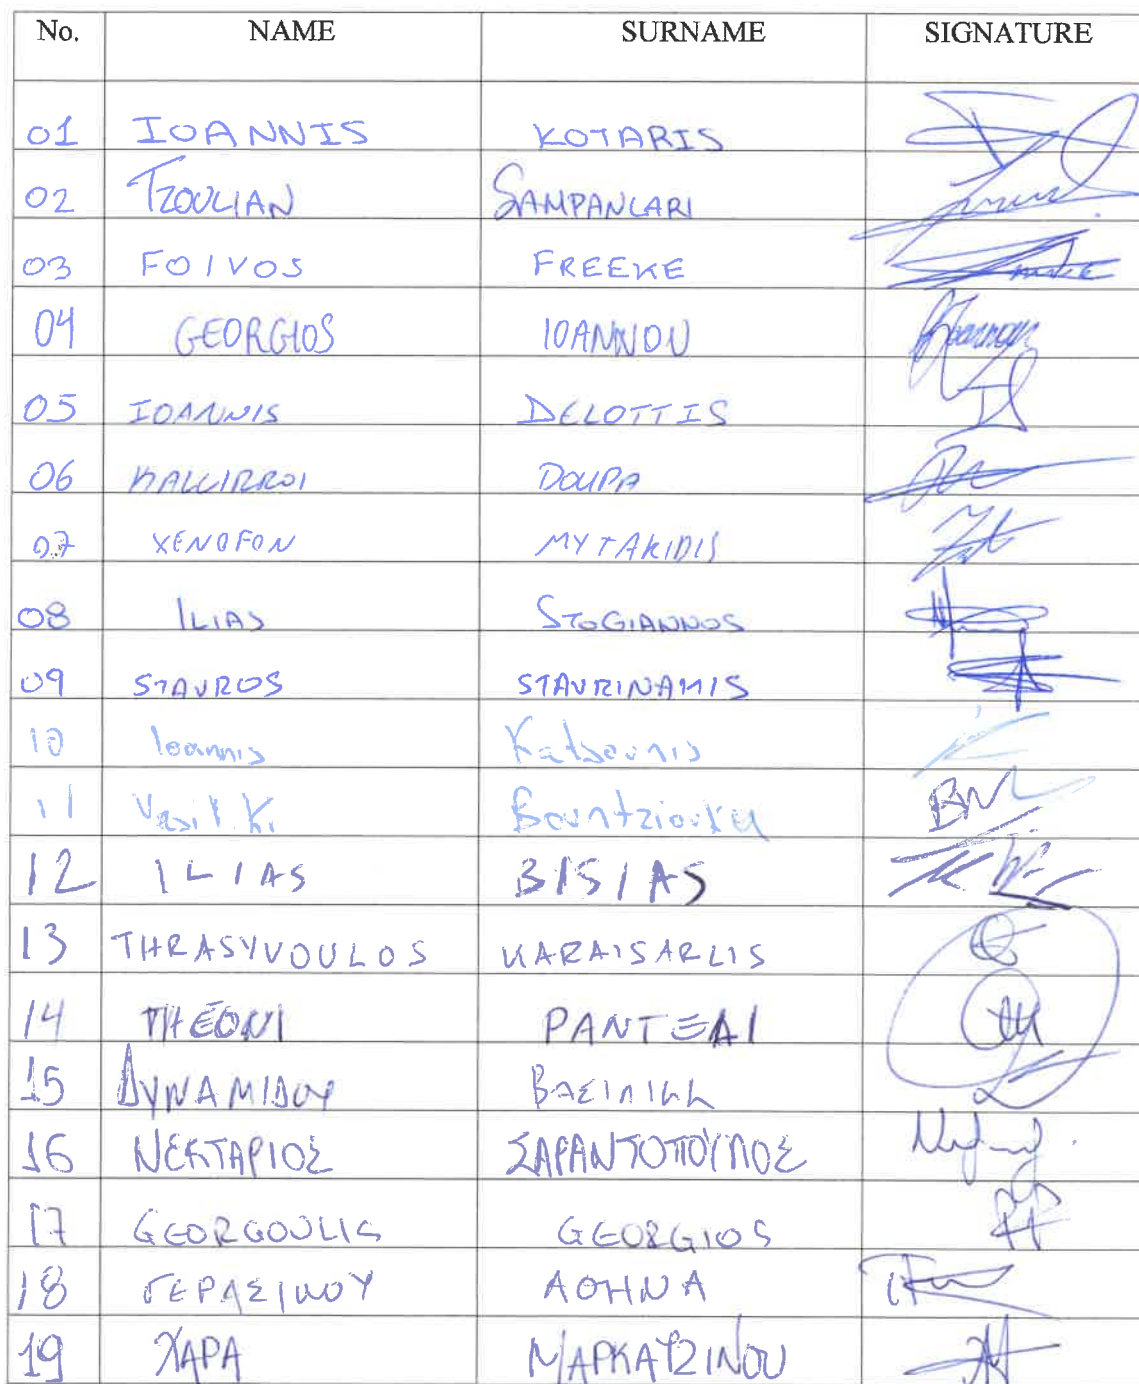 No. NAME SURNAME SIGNATURE
01 IOANNIS KOTARIS
02 TZOULIAN SAMPANLARI
03 FOIVOS FREEKE
04 GEORGIOS IOANNOU
05 IOANNIS DELOTTIS
06 KALLIRROI DOUPA
07 XENOFON MYTAKIDIS
08 ILIAS STOGIANNOS
09 STAVROS STAVRINAKIS
10 Ioannis Katsounis
11 Vasil.Ki
12 ILIAS BISIAS
13 THRASYVOULOS KARAISARLIS
14 THEONI PANTEAI
15 ΔΥΝΑΜΙΔΟΥ ΒΑΣΙΛΙΚΗ
16 ΝΕΚΤΑΡΙΟΣ ΣΑΡΑΝΤΟΠΟΥΛΟΣ
17 GEORGOULIS GEORGIOS
18 ΓΕΡΑΣΙΜΟΥ ΑΘΗΝΑ
19 ΧΑΡΑ ΜΑΡΚΑΤΖΙΝΟΥ